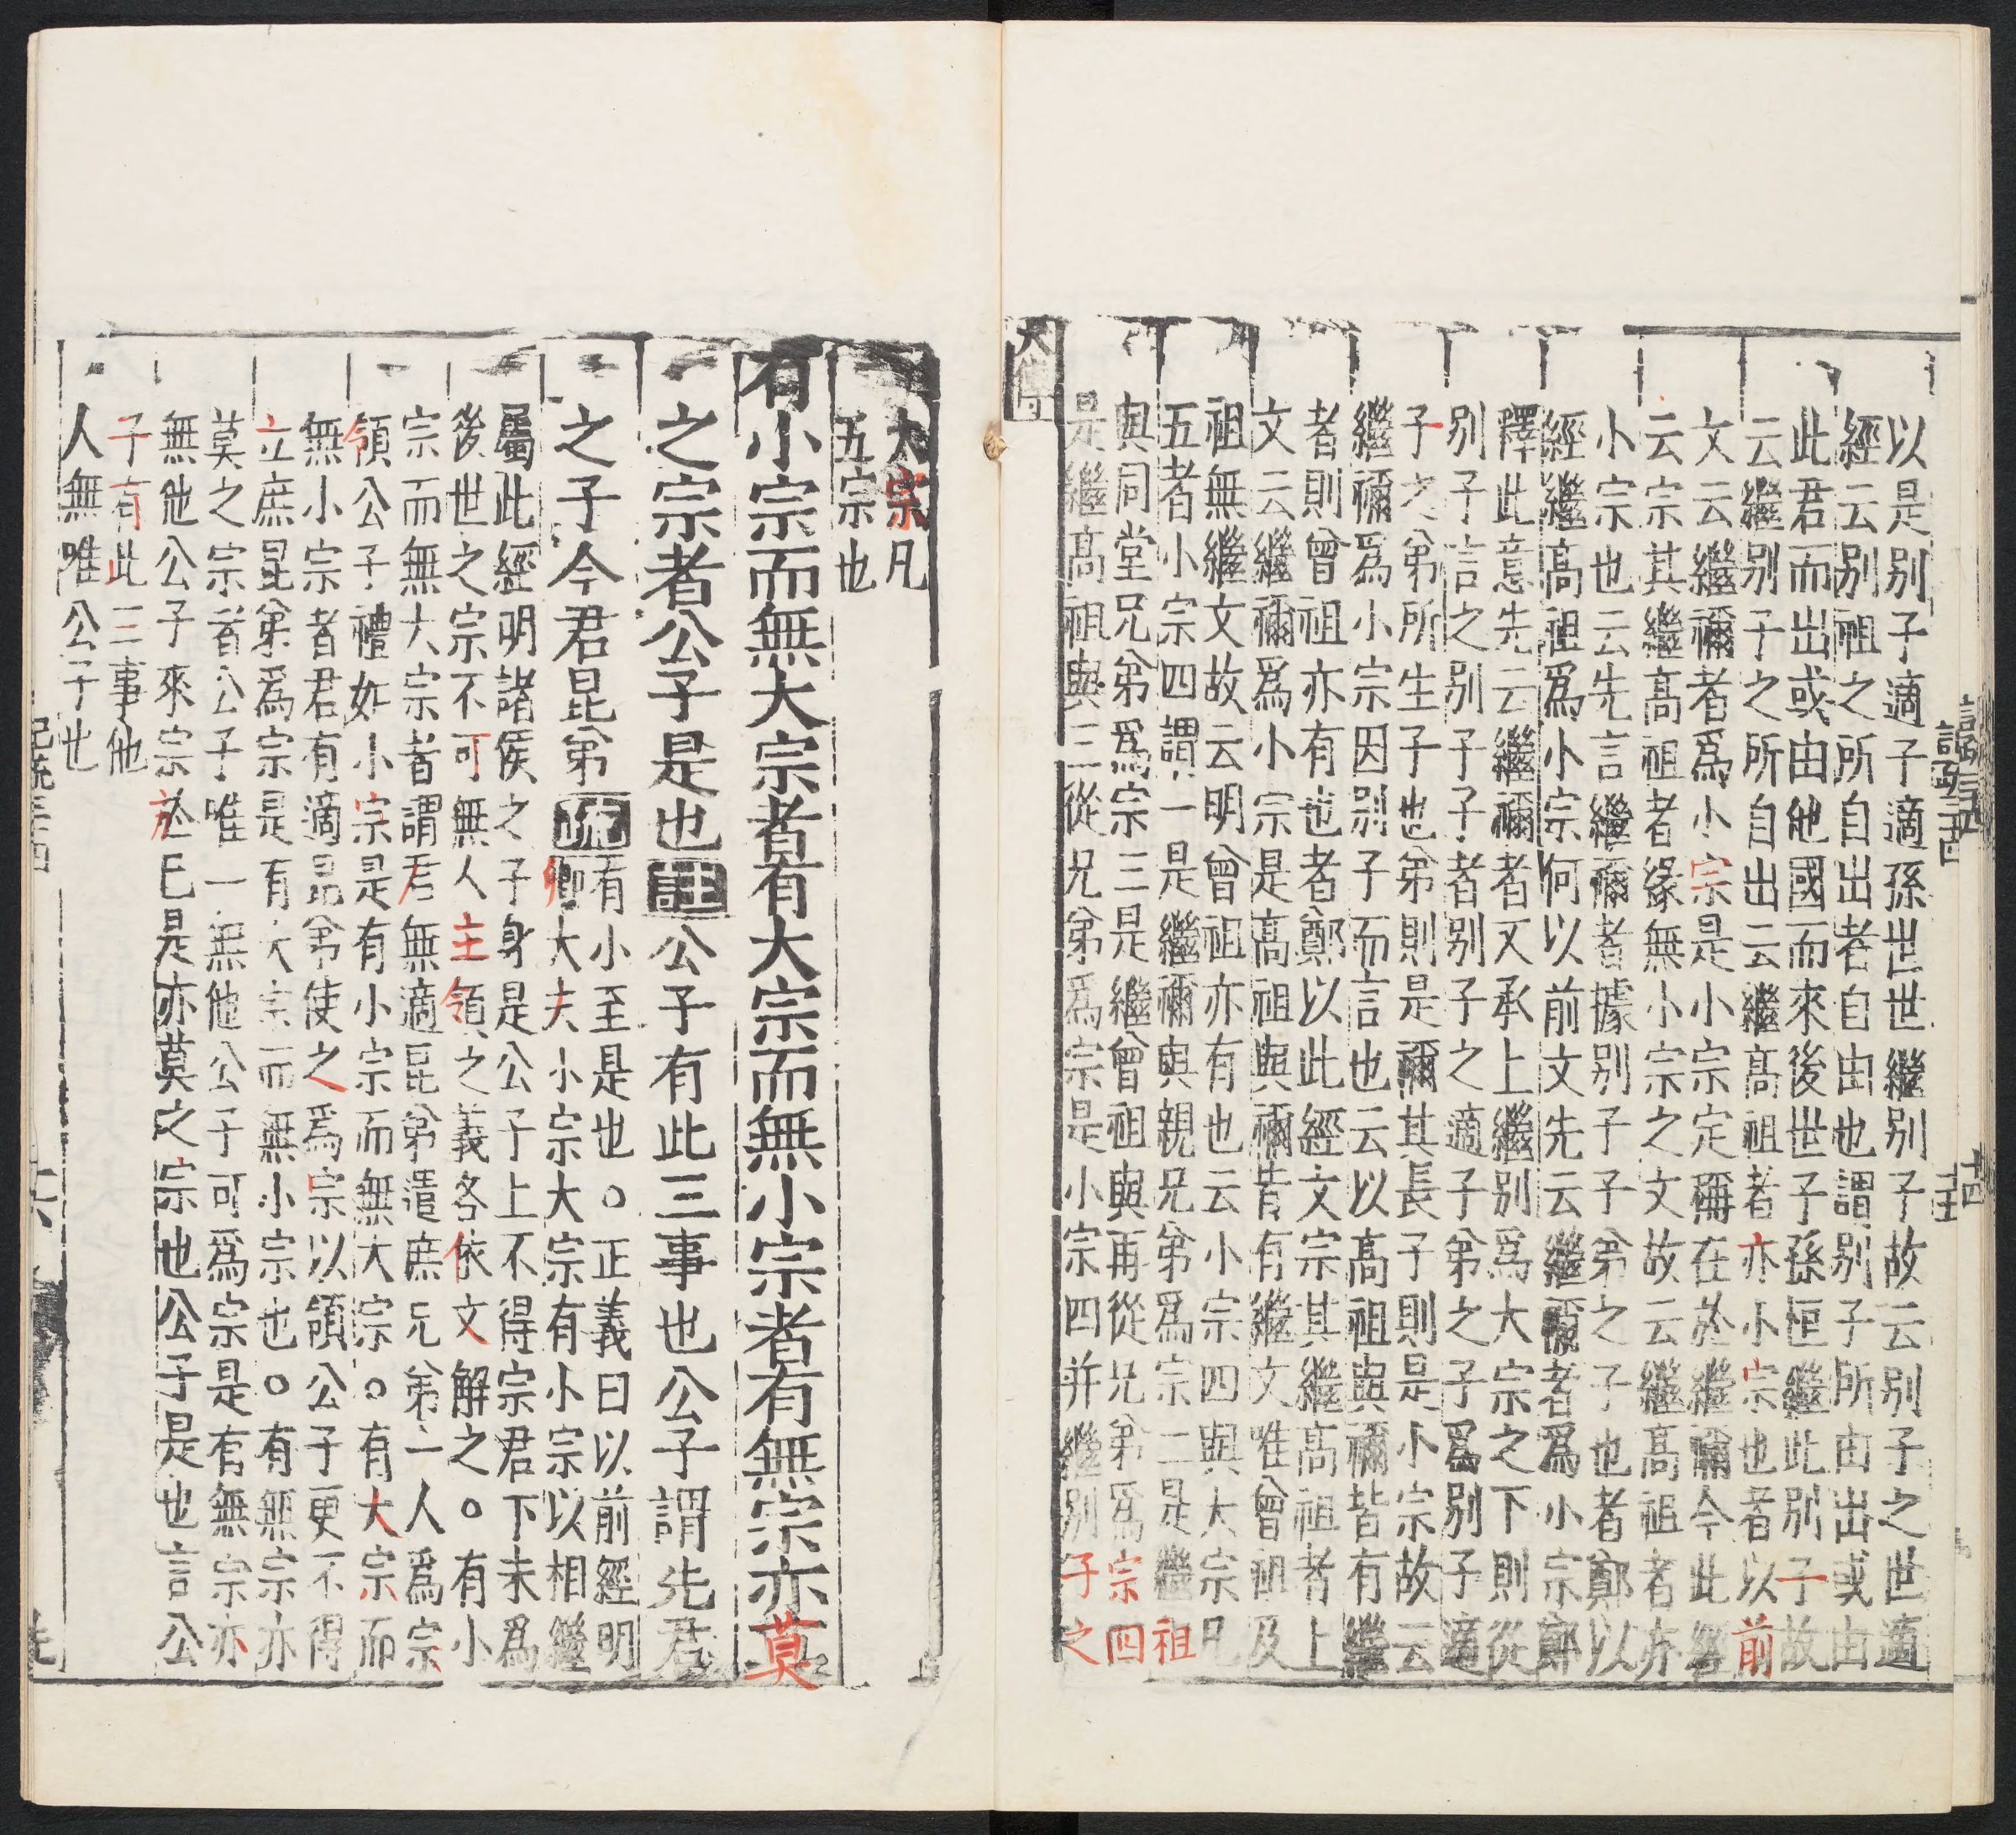 以是别子適子適孫世世繼别子故云别子之世適
經云别祖之所自出者自由也謂别子所由出或由
此君而出或由他國而來後世子孫恒繼此别子故
云繼别子之所自出云繼髙祖者亦小宗也者以前
文云繼禰者爲小宗是小宗定稱在於繼禰今此經
云宗其繼髙祖者緣無小宗之文故云繼髙祖者亦
小宗也云先言繼禰者據别子子弟之子也者鄭以
經繼髙祖爲小宗何以前文先云繼禰者爲小宗鄭
釋此意先云繼禰者文承上繼别爲大宗之下則從
别子言之别子子者别子之適子弟之子爲别子適
子之弟所生子也弟則是禰其長子則是小宗故云
繼禰爲小宗因别子而言也云以髙祖與禰皆有繼
者則曾祖亦有也者鄭以此經文宗其繼髙祖者上
文云繼禰爲小宗是髙祖與禰皆有繼文唯曾祖及
祖無繼文故云明曾祖亦有也云小宗四與大宗凡
五者小宗四謂一是繼禰與親兄弟爲宗二是繼祖
與同堂兄弟爲宗三是繼曾祖與再從兄弟爲宗四
是繼髙祖與三從兄弟爲宗是小宗四并繼别子之
大傳
大宗凡
五宗也
有小宗而無大宗者有大宗而無小宗者有無宗亦莫
之宗者公子是也註公子有此三事也公子謂先君
之子今君昆弟疏有小至是也○正義曰以前經明
卿大夫小宗大宗有小宗以相繼
屬此經明諸侯之子身是公子上不得宗君下未爲
後世之宗不可無人主領之義各依文解之○有小
宗而無大宗者謂君無適昆弟遣庶兄弟一人爲宗
領公子禮如小宗是有小宗而無大宗○有大宗而
無小宗者君有適昆弟使之爲宗以領公子更不得
立庶昆弟爲宗是有大宗而無小宗也○有無宗亦
莫之宗者公子唯一無他公子可爲宗是有無宗亦
無他公子來宗於已是亦莫之宗也公子是也言公
子有此三事他
人無唯公子也
記疏三四